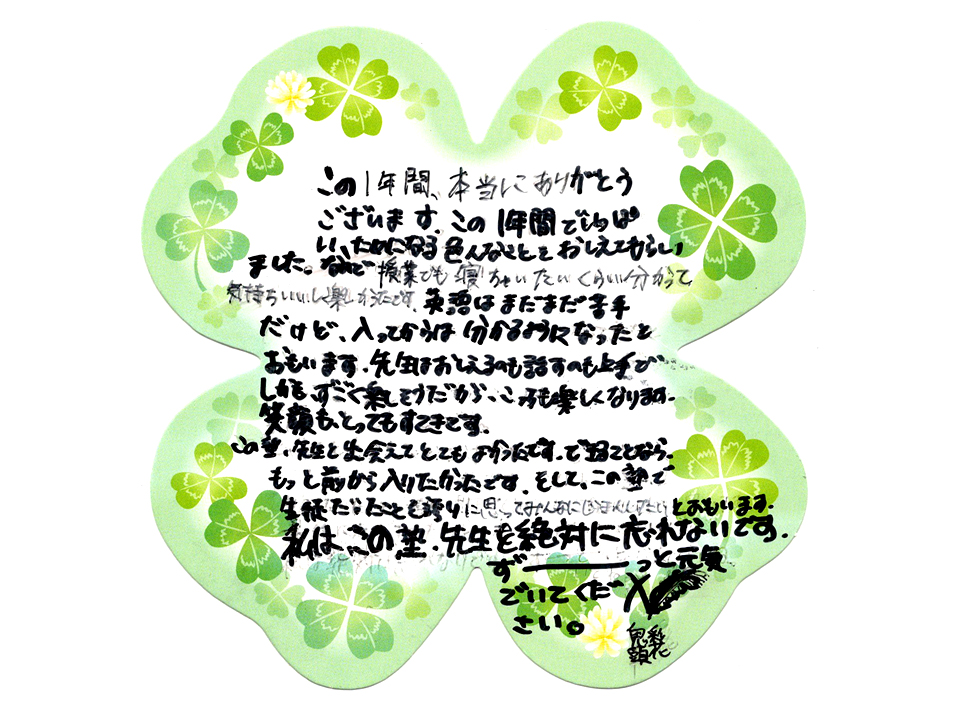 この1年間、本当にありがとう
ございます。この1年間でいっぱ
い、ためになる色んなことを おしえてもらい
ました。なので 授業でも寝ちゃいたいくらい分かって
気持ちいいし楽しかったです。英語はまだまだ苦手
だけど、入ってからは分かるようになったと
おもいます。先生はおしえるのも話すのも上手で
しかも、すごく楽しそうだから、こっちも楽しくなります。
笑顔も、とってもすてきです。
この塾、先生と出会えてとてもよかったです。できることなら、
もっと前から入りたかったです。そして、この塾で
生徒だったことを誇りに思ってみんなにじまんしたい とおもいます。
私はこの塾、先生を絶対に忘れないです。
ず――――っと元気
でいてくだ
さい。
鬼頭